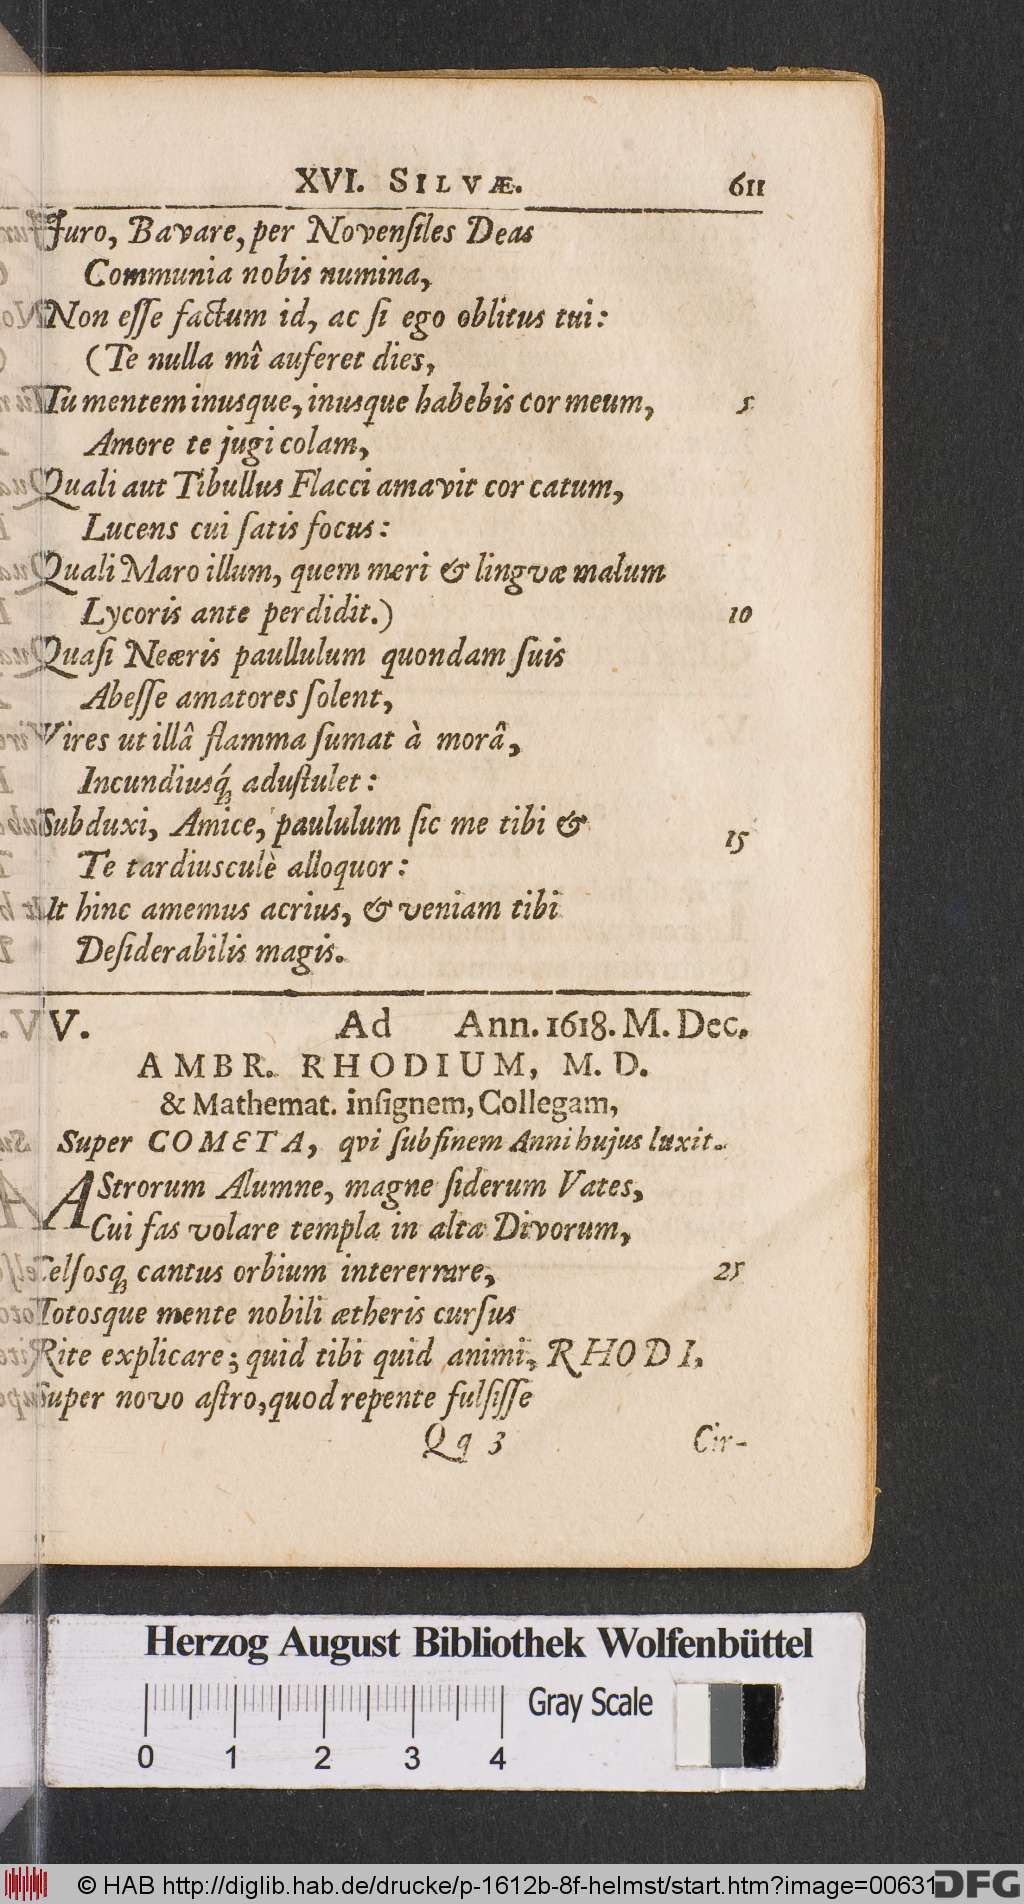 XVI. SILVÆ. 611
Juro, Bavare, per Novenſiles Deas
Communia nobis numina,
Non eſſe factum id, ac ſi ego oblitus tui:
(Te nulla mî auferet dies,
Tu mentem inusque, inusque habebis cor meum, 5
Amore te jugi colam,
Quali aut Tibullus Flacci amavit cor catum,
Lucens cui ſatis focus:
Quali Maro illum, quem meri & lingvæ malum
Lycoris ante perdidit.) 10
Quaſi Neæris paullulum quondam ſuis
Abeſſe amatores ſolent,
Vires ut illâ flamma ſumat à morâ,
Incundiusq́; aduſtulet:
Subduxi, Amice, paululum ſic me tibi & 15
Te tardiusculè alloquor:
Ut hinc amemus acrius, & veniam tibi
Deſiderabilis magis.
V. Ad Ann. 1618. M. Dec.
AMBR. RHODIUM, M. D.
& Mathemat. inſignem, Collegam,
Super COMETA, qvi ſub finem Anni hujus luxit.
AStrorum Alumne, magne ſiderum Vates,
Cui fas volare templa in alta Divorum,
Celſosq; cantus orbium intererrare, 25
Totosque mente nobili ætheris curſus
Rite explicare; quid tibi quid animi, RHODI,
Super novo aſtro, quod repente fulſiſſe
Qq 3 Cir-
Herzog August Bibliothek Wolfenbüttel
Gray Scale
0 1 2 3 4
© HAB http://diglib.hab.de/drucke/p-1612b-8f-helmst/start.htm?image=00631
DFG